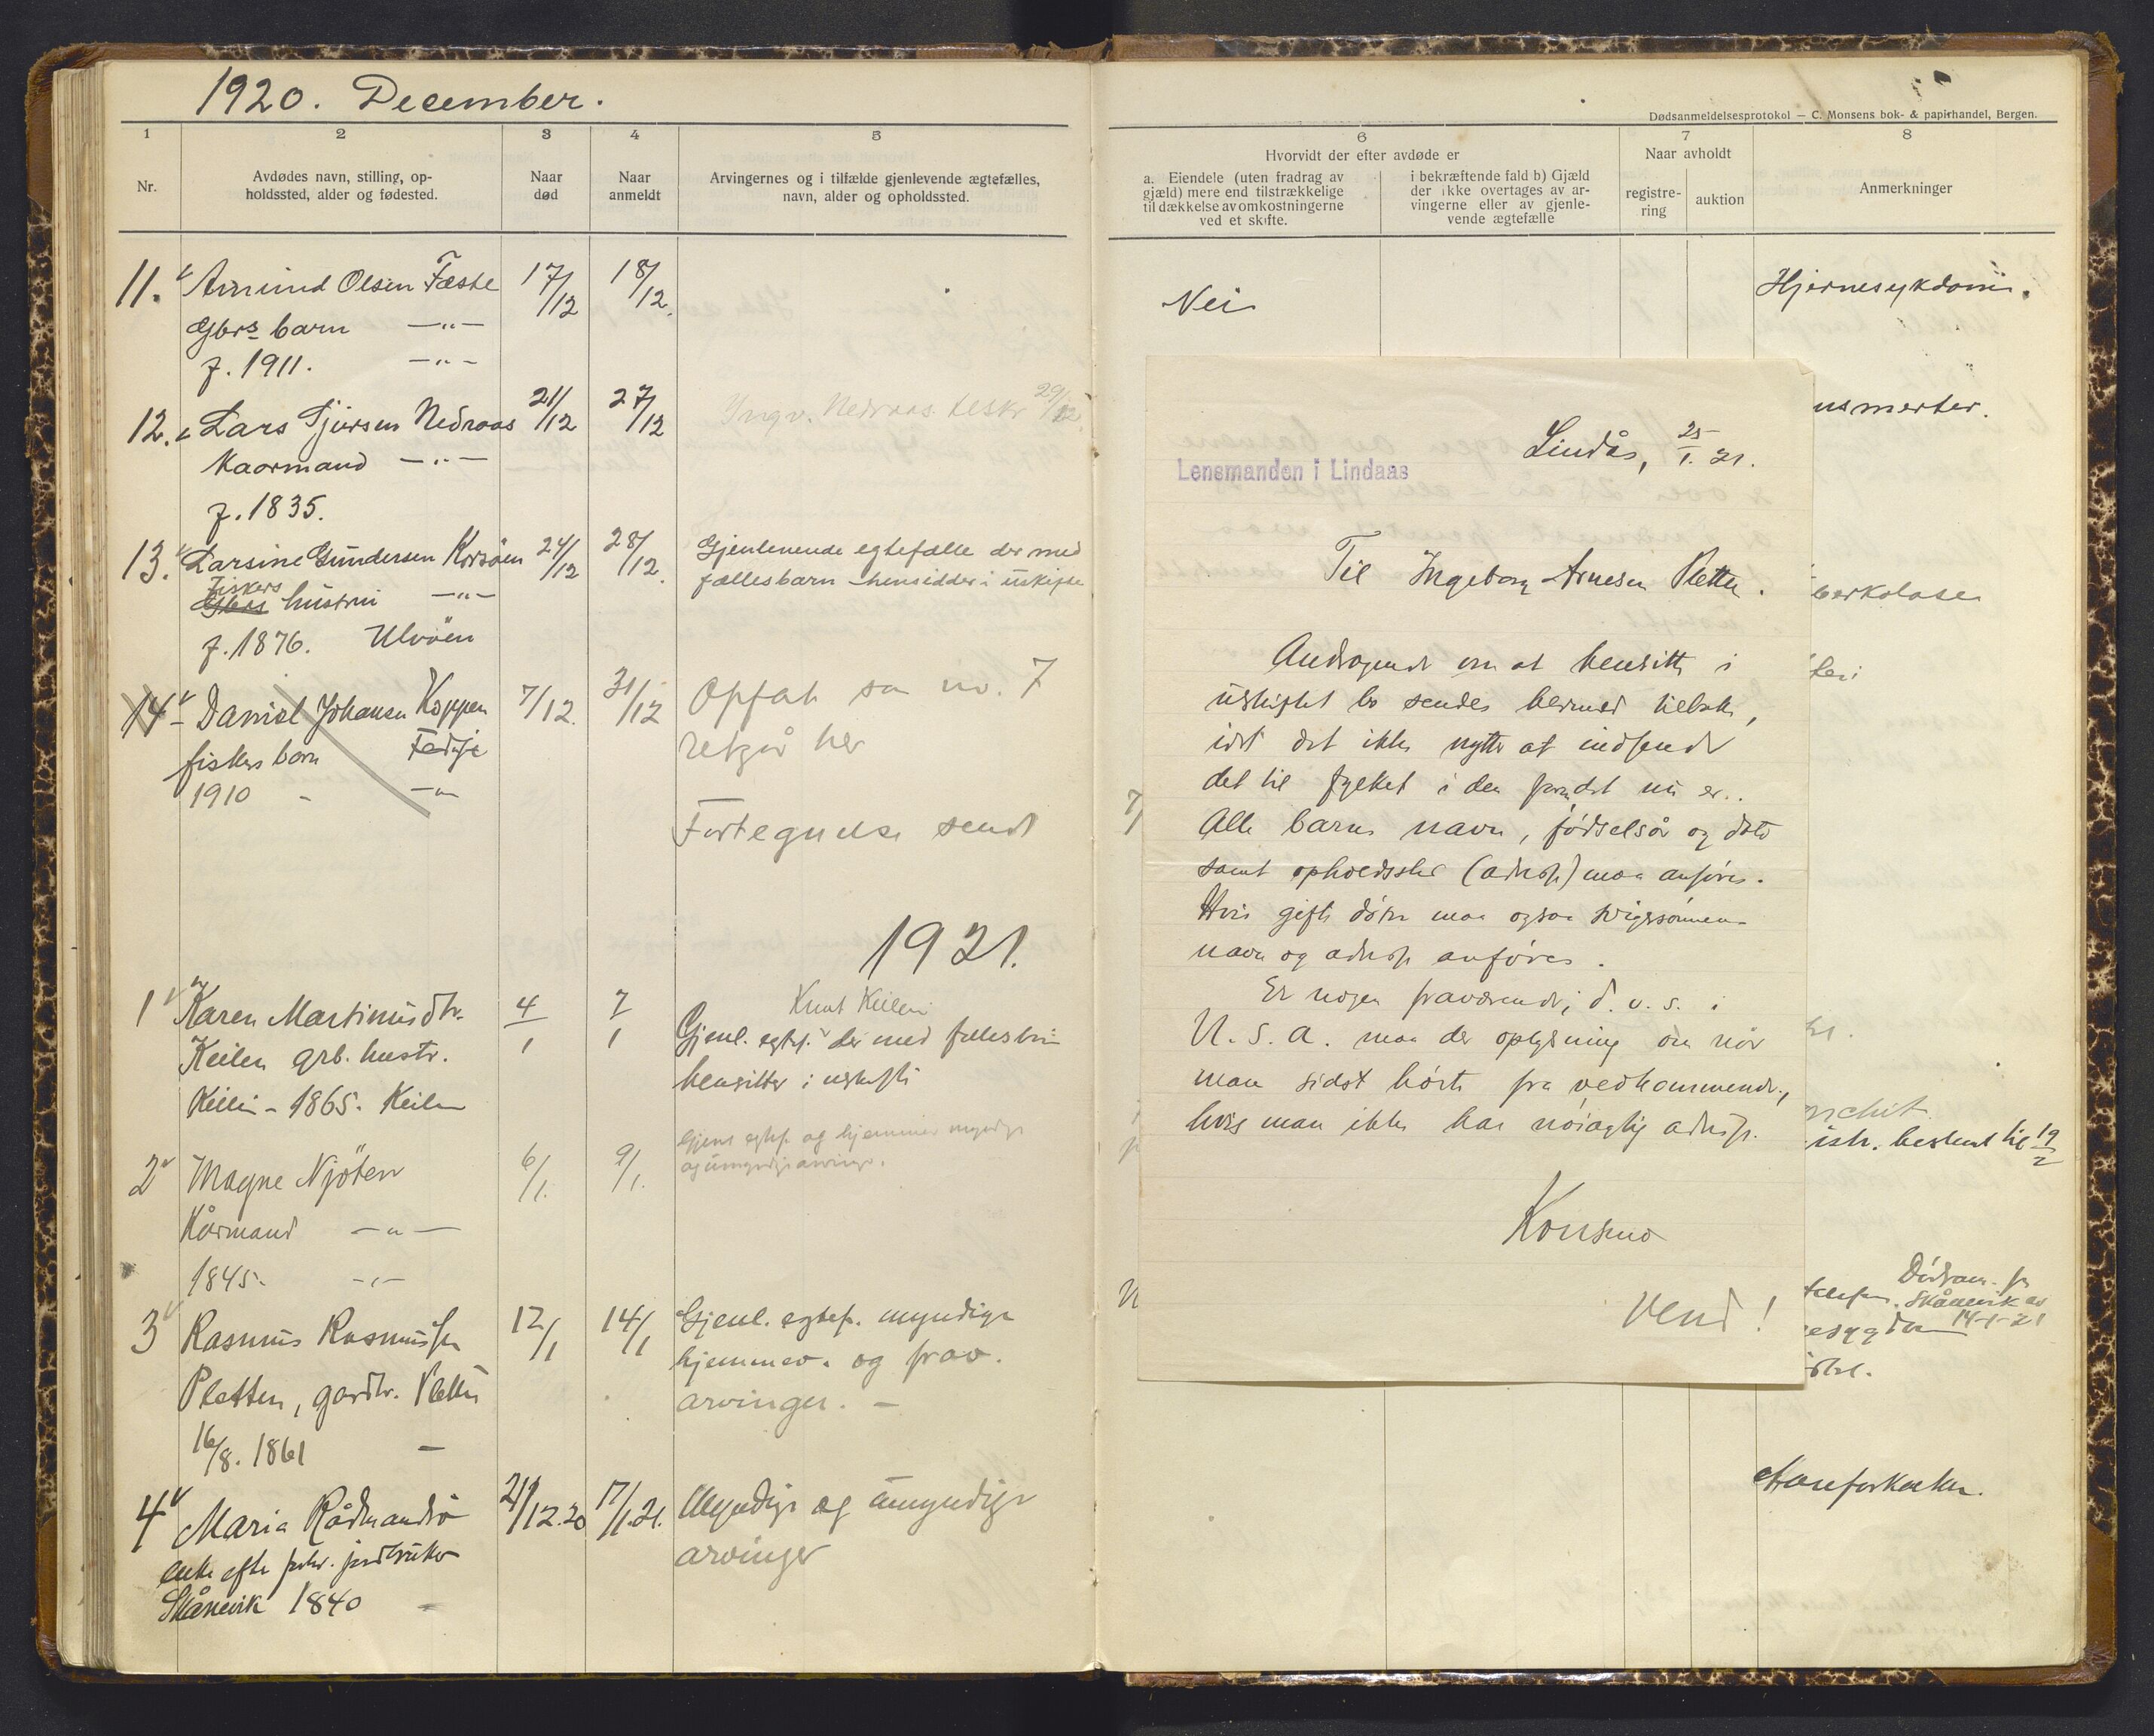 1920. December.
1
2
3
4
5
Nr.
Avdødes navn, stilling, op-
holdssted, alder og fødested.
Naar
død
Naar
anmeldt
Arvingernes og i tilfælde gjenlevende ægtefælles,
navn, alder og opholdssted.
11. Amund Olsen Fæste 17/12 18/12.
Gbrs barn —"—
f. 1911. —"—
12. Lars Gjursen Nedraas 21/12 27/12 Ingv. Nedraas 29/12.
Kaarmand —"—
f. 1835.
13. Larsine Gundersen Korsöen 24/12 28/12. Gjenlevende egtefælle der med
Fiskers
Gbrs hustru —"— fællesbarn hensidder i uskifte
f. 1876. Ulvöen
14 Daniel Johansen Koppen 7/12. 31/12 Opfört som nr. 7
fiskers barn Fedje
1910 - —"—
Fortegnelse sendt
1921.
1 Karen Martinusdtr. 4/1 7/1 Knut Keilen
Gjenl. egtef. der med fællesbrn
Keilen grb. hustr.
hensitter i uskifte
Keilen - 1865. Keilen
2 Magne Njöten 6/1. 9/1. Gjenl egtef. og hjemmev myndige
og umyndige arvinge.
Kårmand —"—
1845. —"—
3 Rasmus Rasmussen 12/1 14/1 Gjenl. egtef. myndige
hjemmev. og frav.
Pletten, gardbr. Pletten
arvinger. —
16/8. 1861 —
4 Maria Rådmandsö 21/12.20 17/1.21. Myndige og umyndige
enke efter forhv. jordbruker
arvinger
Skånevik 1840 -
Dødsanmeldelsesprotokol — C. Monsens bok- & papirhandel, Bergen.
6
7
8
Hvorvidt der efter avdøde er
Naar avholdt
a. Eiendele (uten fradrag av
gjæld) mere end tilstrækkelige
til dækkelse av omkostningerne
ved et skifte.
i bekræftende fald b) Gjæld
der ikke overtages av ar-
vingerne eller av gjenle-
vende ægtefælle
registre-
ring
auktion
Anmerkninger
Nei
Hjernesykdom.
usmerter.
berkolose
Lensmanden i Lindaas
Lindås, 25/1. 21.
Til Ingeborg Arnesen Pletten.
Andragende om at hensitte i
uskiftet bo sendes hermed tilbake,
idet det ikke nytter at indsende
det til fylket i den form det nu er..
Alle barns navn, fødselsår og dato
samt opholdssted (adresse) maa anføres.
Hvis gifte døtre maa ogsaa svigersønnens
navn og adresse anføres.
Er nogen fraværende, d. v. s. i
U. S. A. maa der oplysning om når
man sidst hørte fra vedkommende,
hvis man ikke har nøiagtig adresse.
Konsmo
Vend!
istr. bestemt til 19/2
Dödsanm. fra
Skånevik av
14-1-21